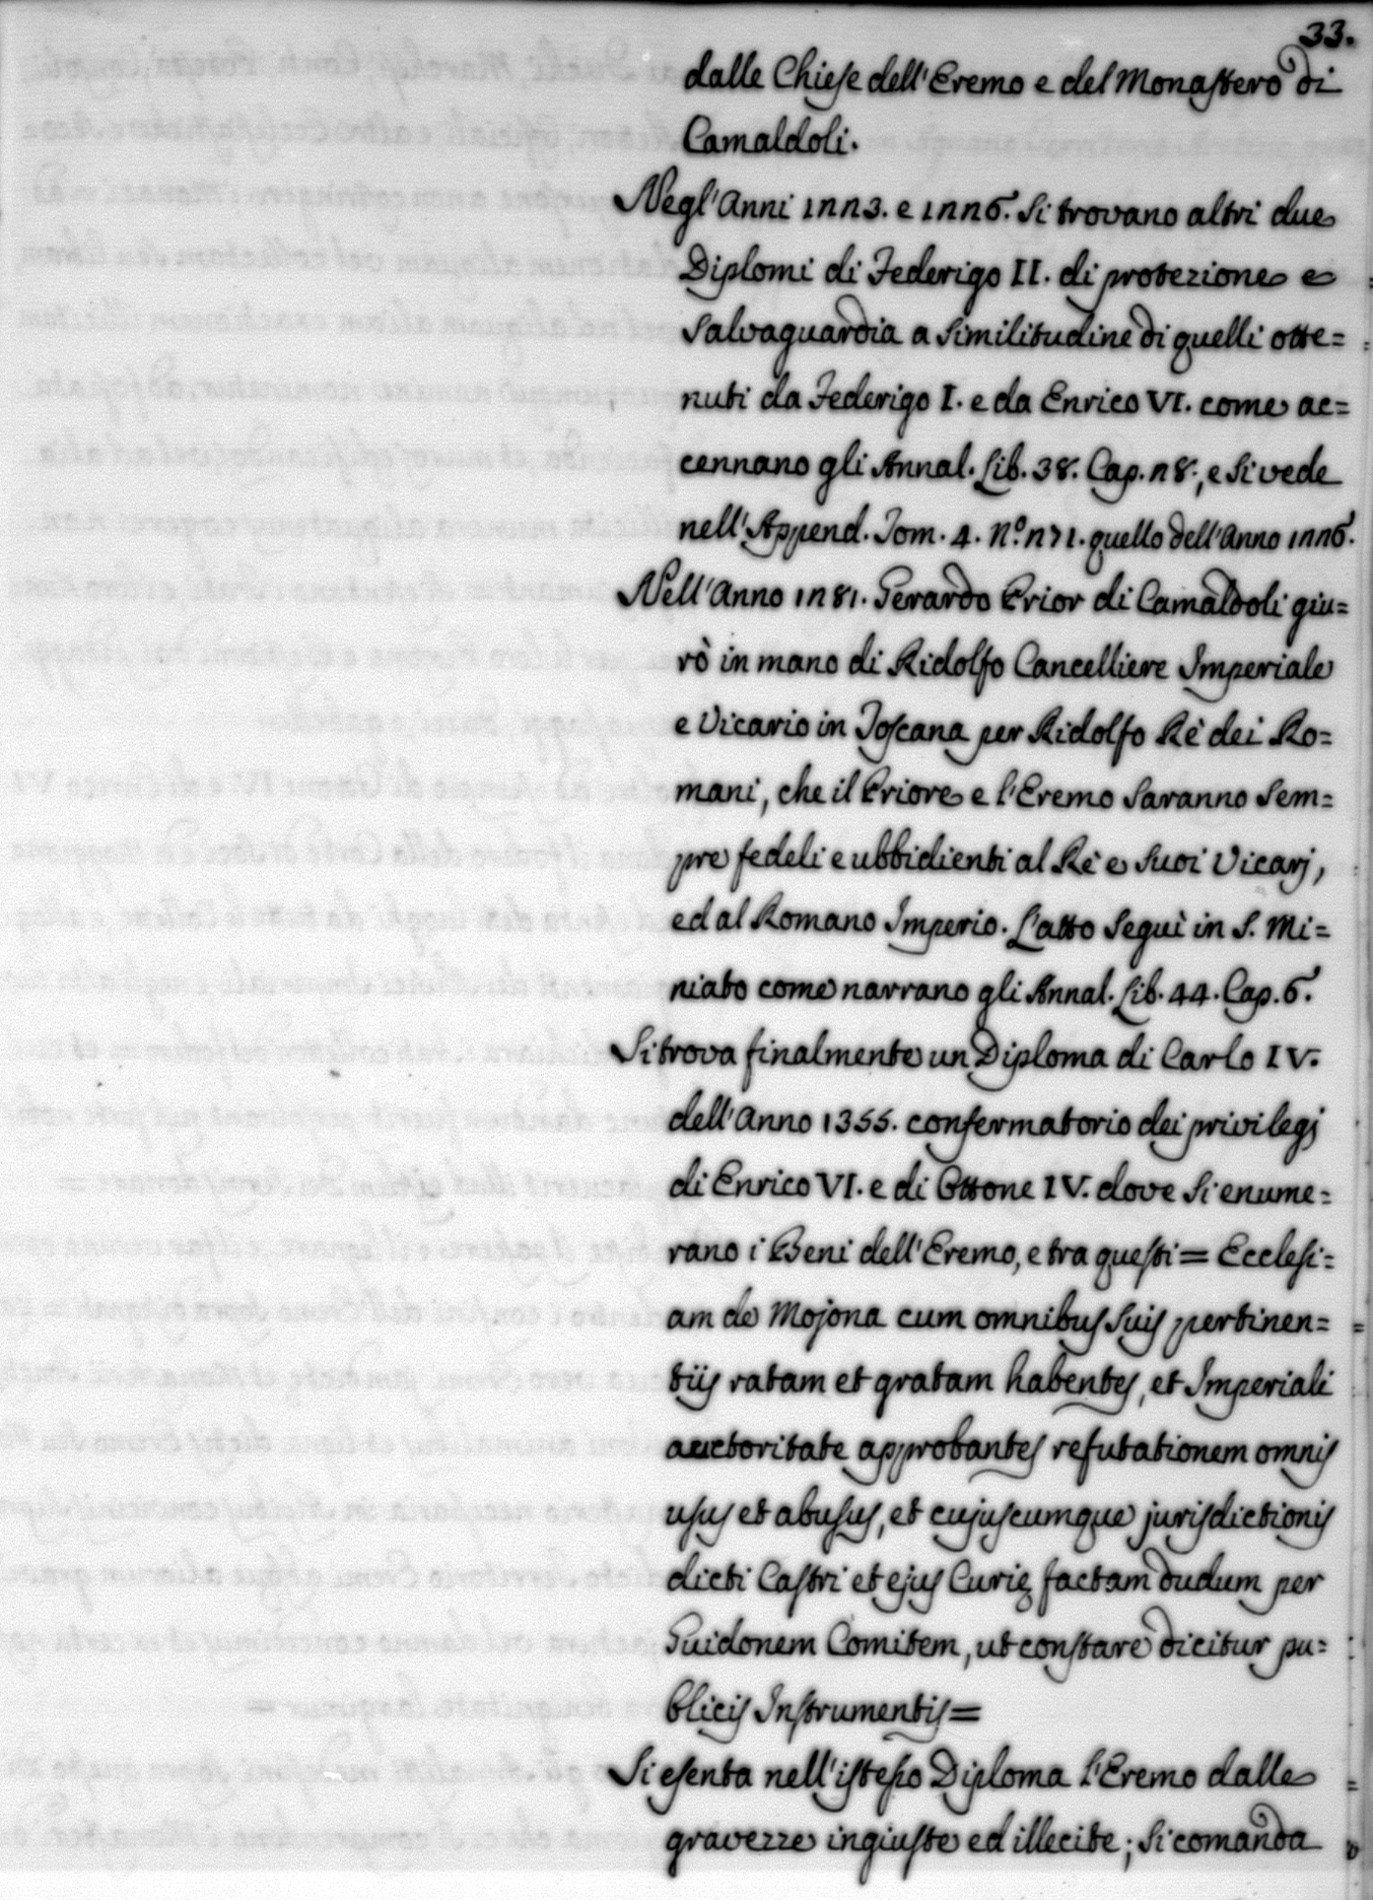 33.
dalle Chiese dell'Eremo e del Monastero di
Camaldoli.
Negl'Anni 1223. e 1226. si trovano altri due
Diplomi di Federigo II. di protezione e
salvaguardia a similitudine di quelli otte=
nuti da Federigo I. e da Enrico VI. come ac=
cennano gli Annal. Lib. 38. Cap. 28., e si vede
nell'Append. Tom. 4. N.° 271. quello dell'Anno 1226.
Nell'Anno 1281. Gerardo Prior di Camaldoli giu=
rò in mano di Ridolfo Cancelliere Imperiale
e Vicario in Toscana per Ridolfo Rè dei Ro=
mani, che il Priore e l'Eremo saranno sem=
pre fedeli e ubbidienti al Rè e suoi Vicarj,
ed al Romano Imperio. L'atto seguì in S. Mi=
niato come narrano gli Annal. Lib. 44. Cap. 6.
Si trova finalmente un Diploma di Carlo IV.
dell'Anno 1355. confermatorio dei privilegj
di Enrico VI. e di Ottone IV. dove si enume=
rano i Beni dell'Eremo, e tra questi = Ecclesi=
am de Mojona cum omnibus suis pertinen=
tiis ratam et gratam habentes, et Imperiali
auctoritate approbantes refutationem omnis
usus et abusus, et cujuscumque jurisdictionis
dicti Castri et ejus Curię factam dudum per
Guidonem Comitem, ut constare dicitur pu=
blicis Instrumentis =
Si esenta nell'istesso Diploma l'Eremo dalle
gravezze ingiuste ed illecite; si comanda